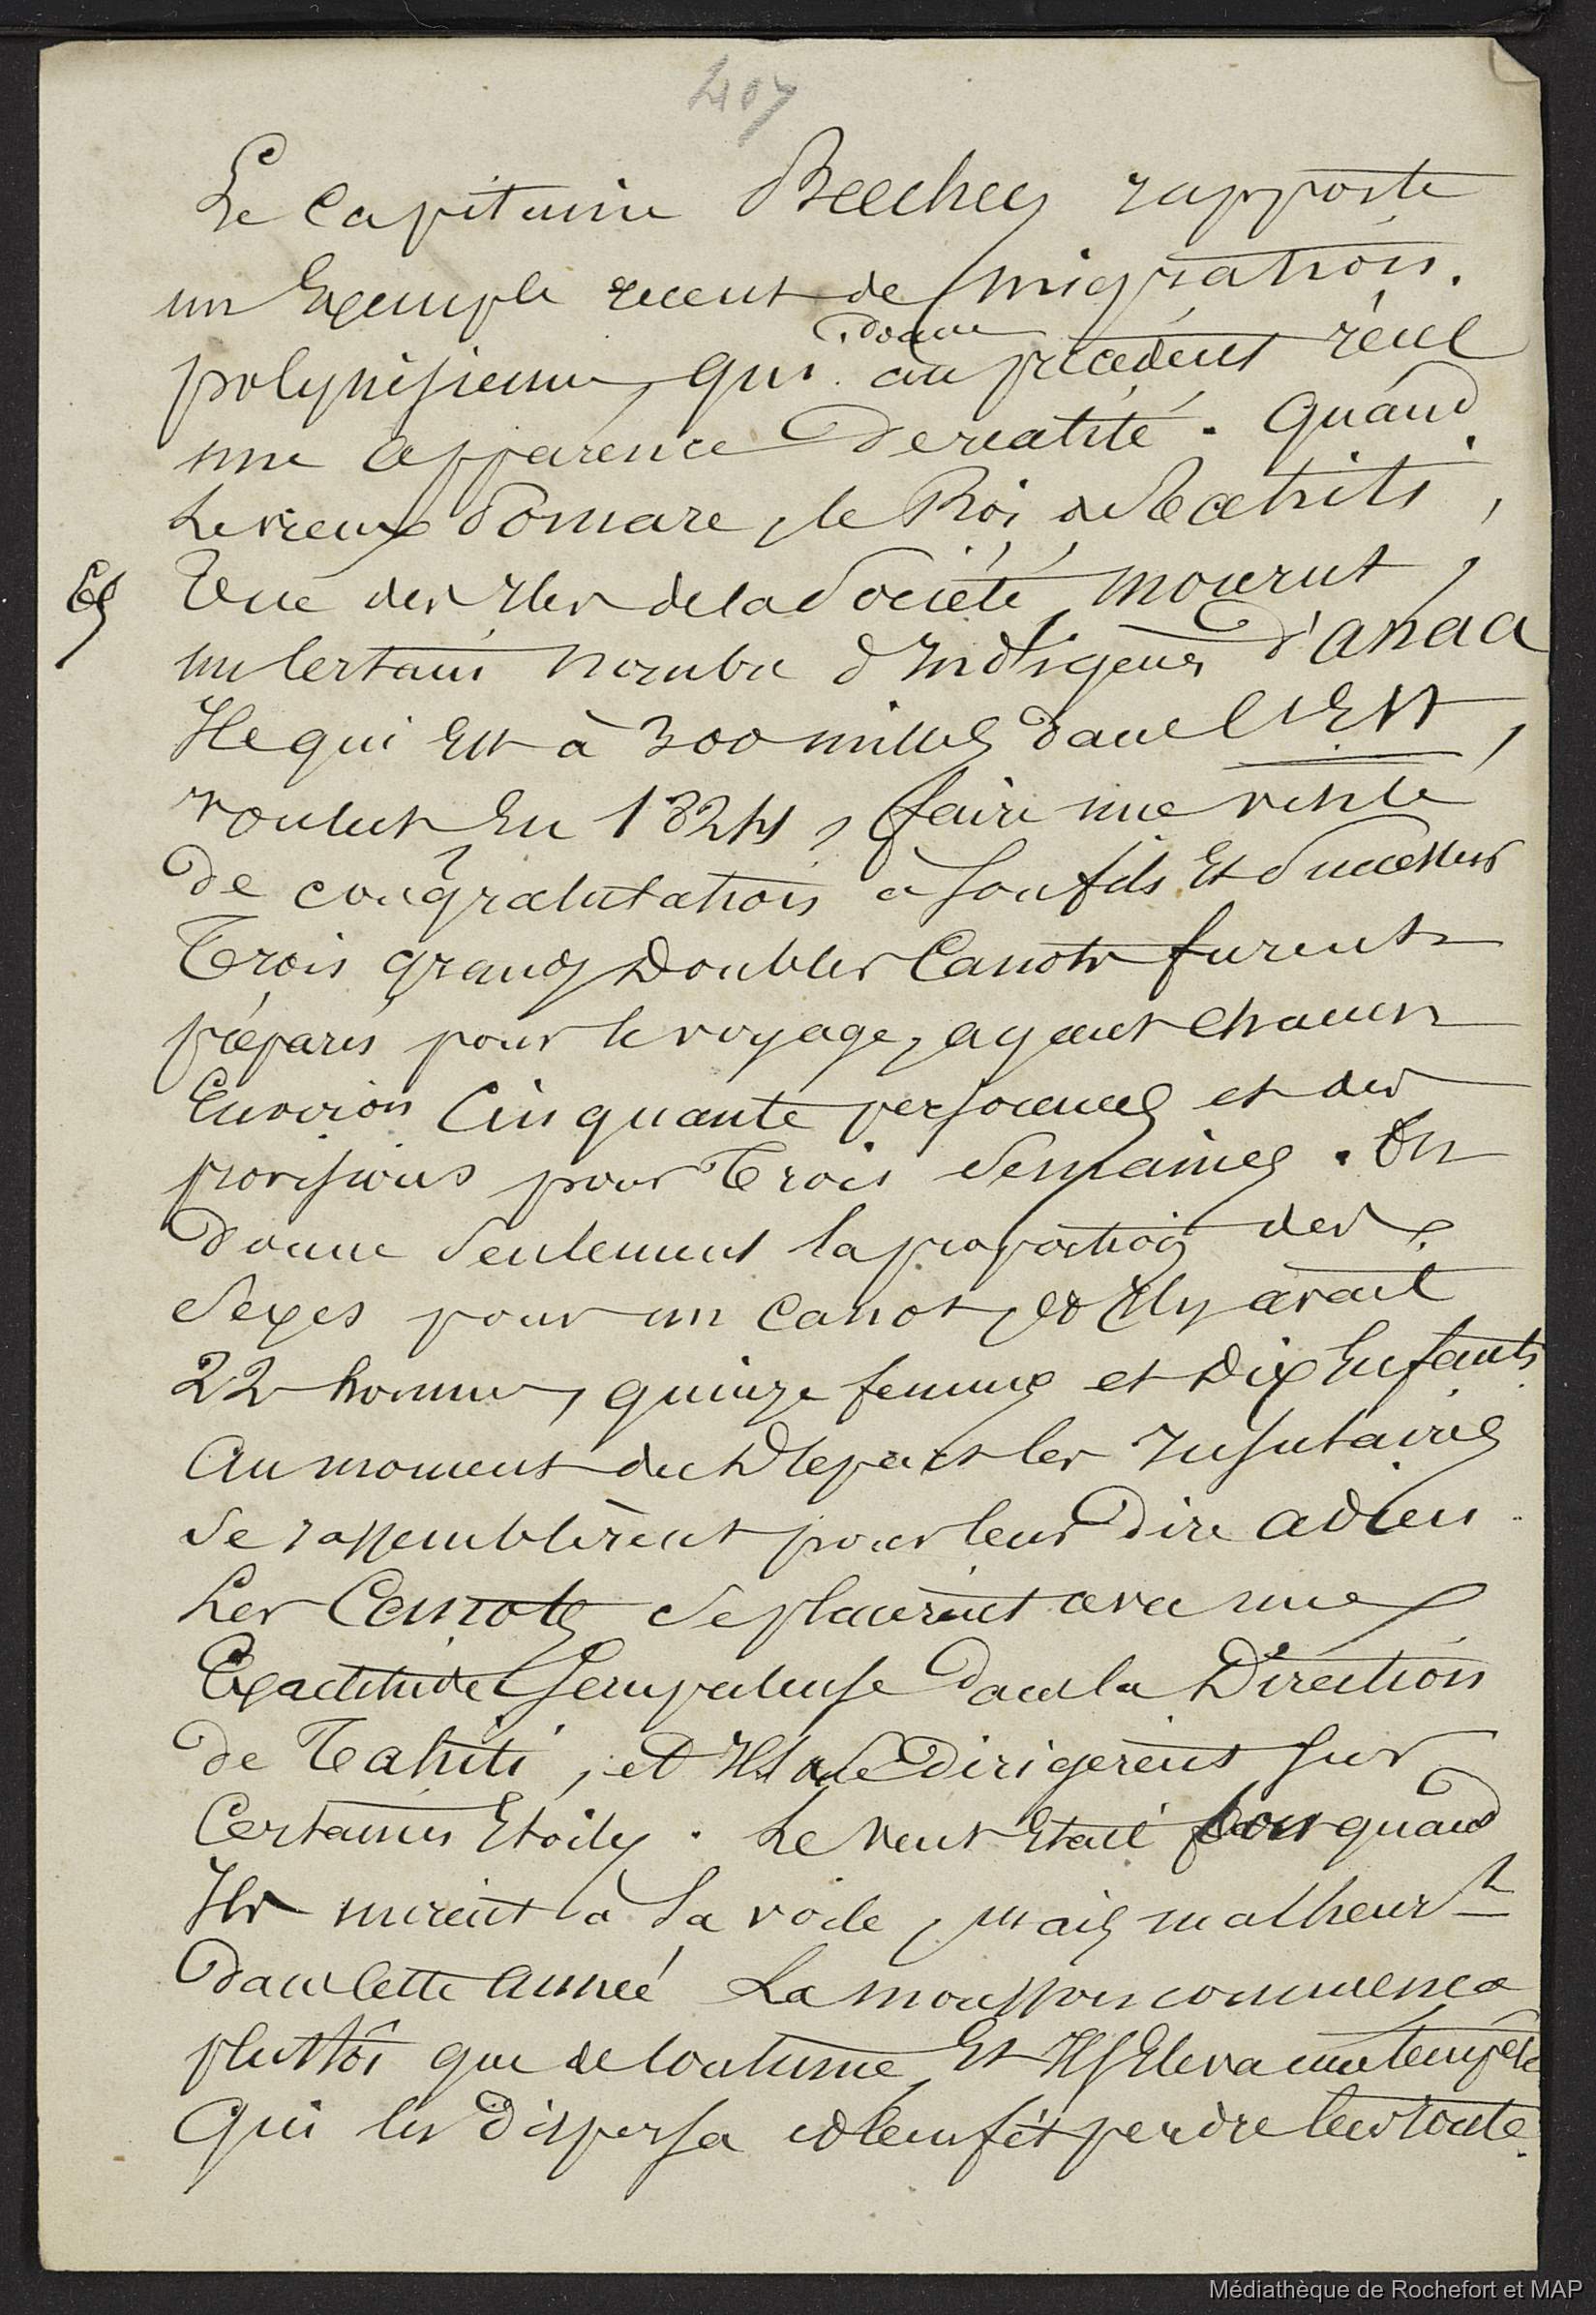 407
Le Capitaine Beechey rapporte
un Exemple recent de migration.
donne
polynésienne, qui au précédent récit
une apparence de réalité. Quand
Le vieux Pomare, le Roi de Taehiti,
l'une des Iles de la Société, mourut,
un certain nombre d'Indigenes d'anaa
Ile qui Est à 300 milles dans l'Est,
voulut En 1824, faire une visite
de congratulation à son fils Et Successeur
Trois grands Doubles Canots furent
préparés pour le voyage, ayant chacun
Environ Cinquante personnes et des
provisions pour Trois Semaines. On
donne Seulement la proportion des
Sexes pour un canot, et Il y avait
22 hommes, quinze femmes et Dix Enfants
Au moment du Depart les Insulaires
Se rassemblèrent pour leur Dire adieu.
Les Canots se placèrent avec une
Exactitude scrupuleuse dans la Direction
de Tahiti, et Ils se Dirigerent sur
Certaines Etoiles. Le vent Etait bon quand
Ils mirent à la voile, mais malheurt
Dans cette année La mousson commença
plutôt que de coutume, Et Il s'Eleva une tempête
Qui les Dispersa et leur fit perdre leur route.
Médiathèque de Rochefort et MAP